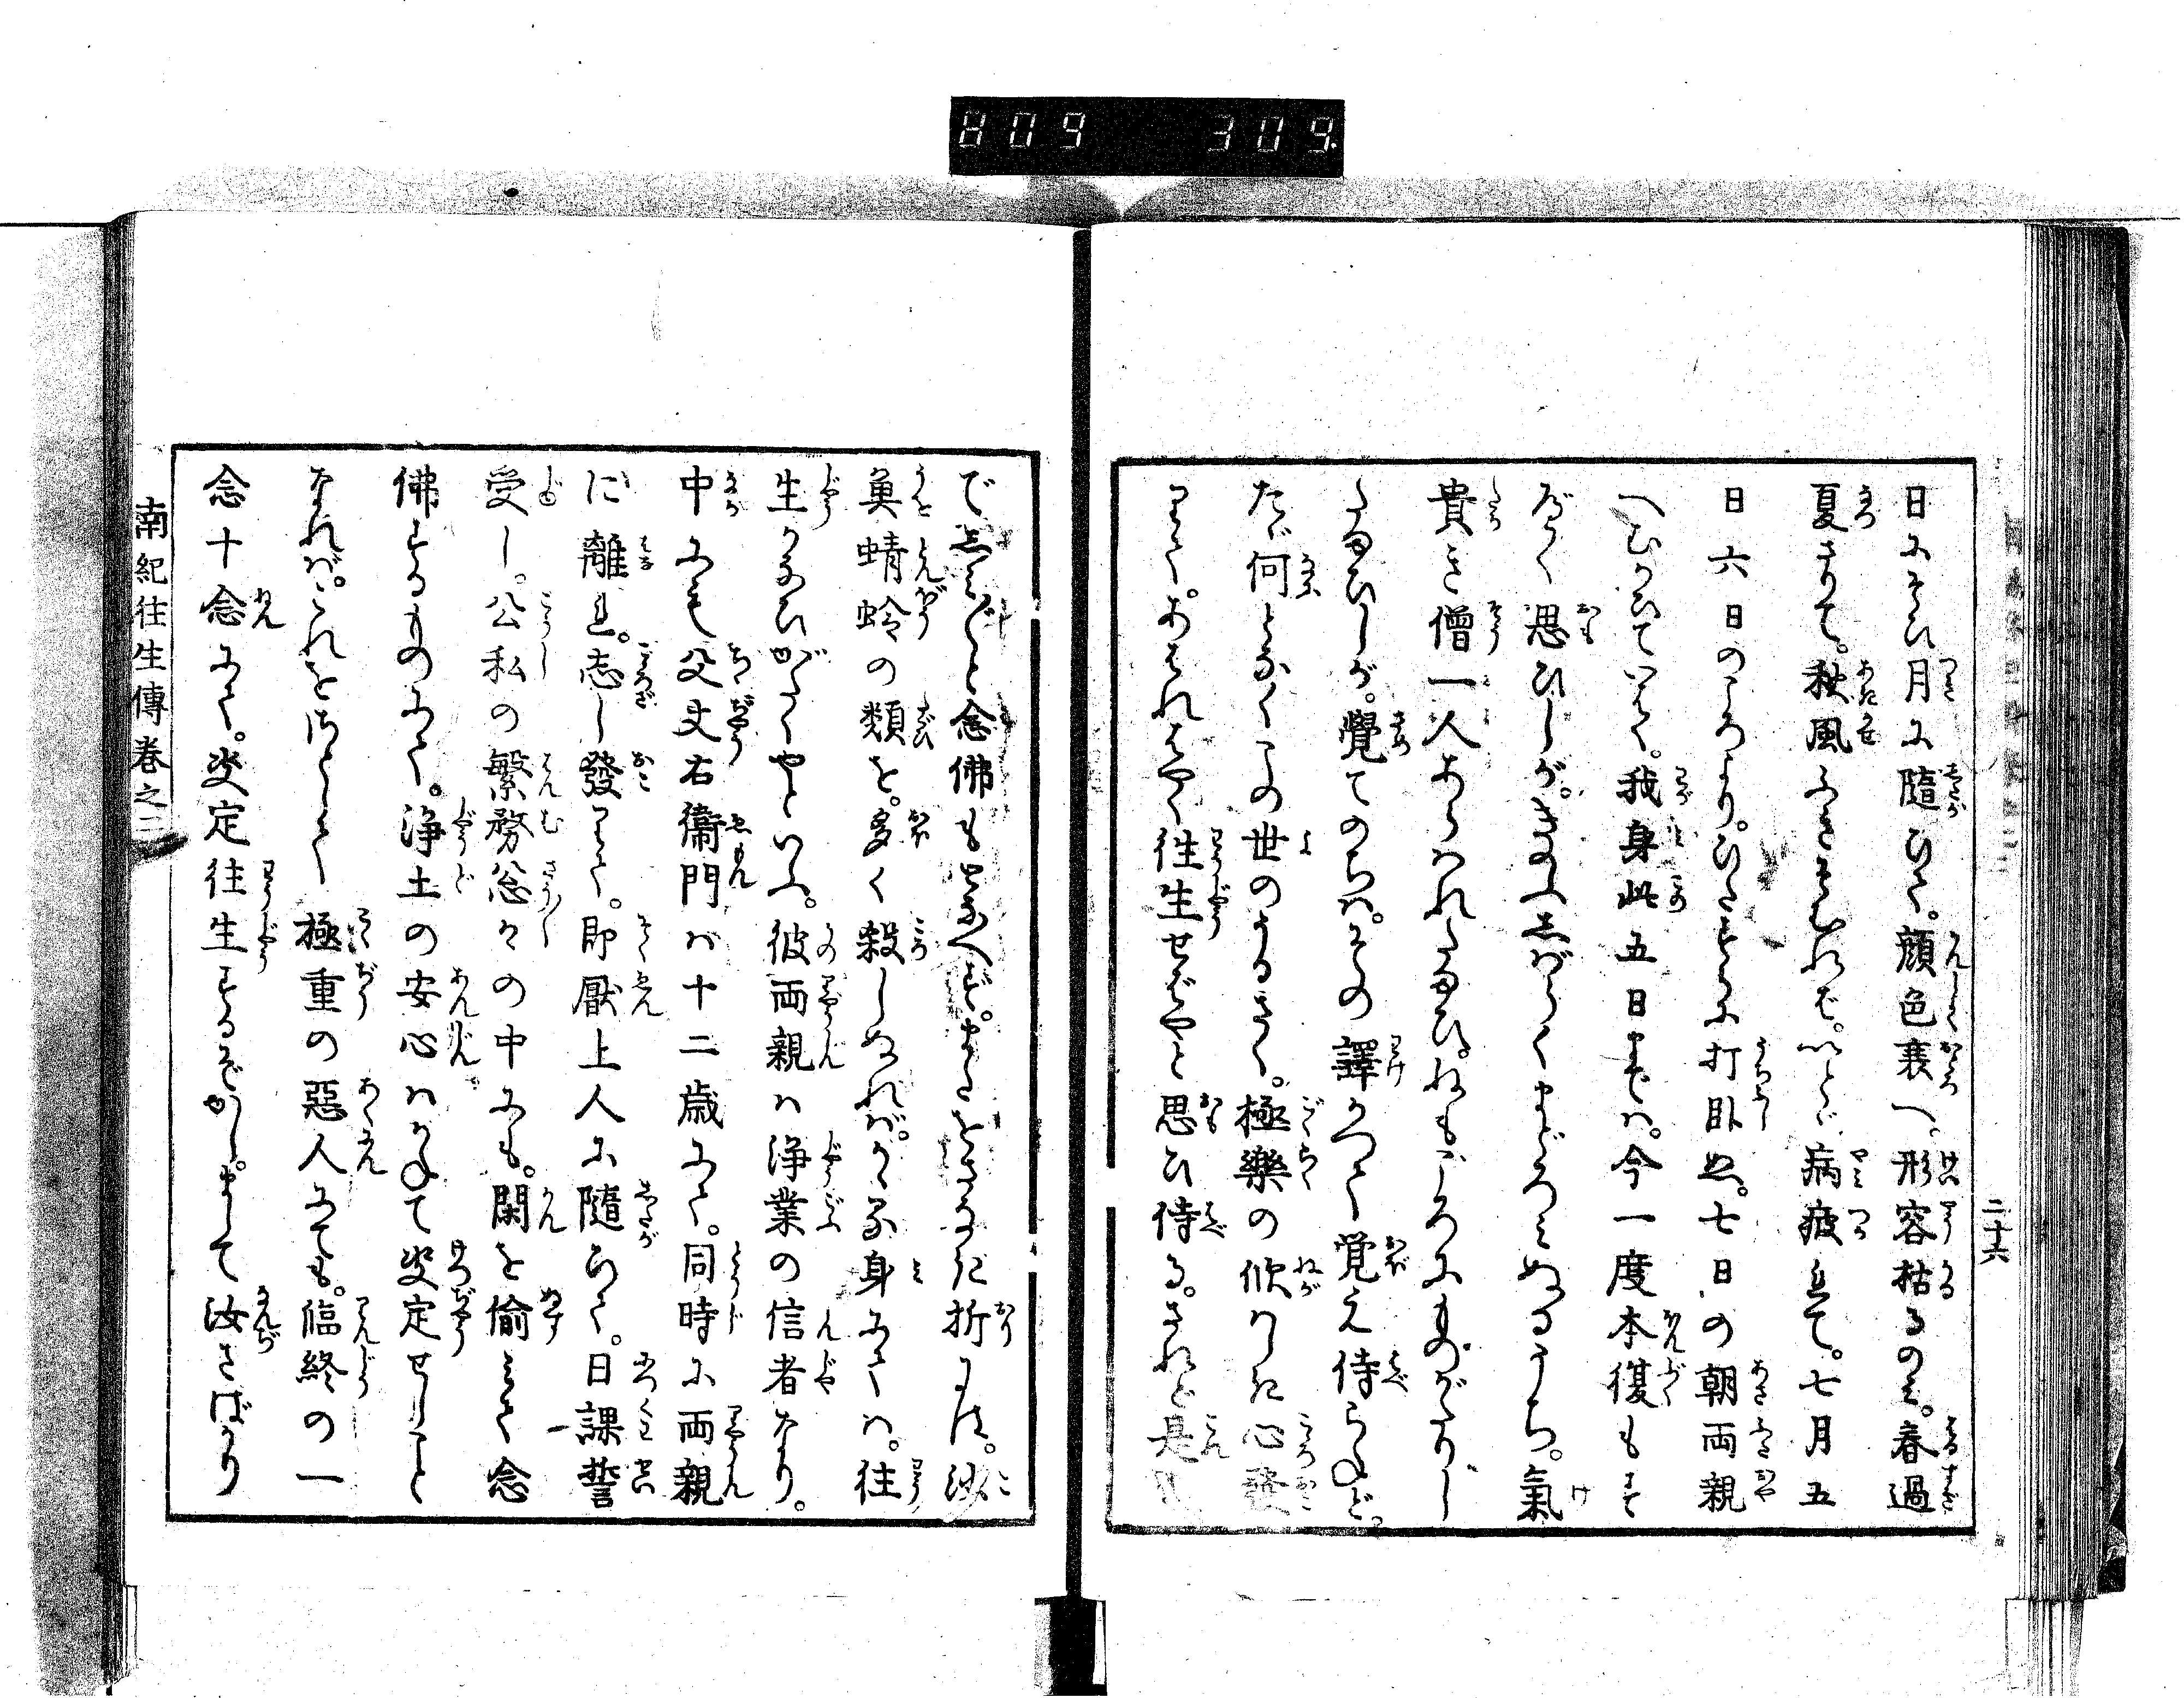 809 309.
二十六
日にそひ月に隨ひて。顔色衰へ。形容枯るのミ。春過
夏さりて。秋風ふきそむれバ。いとゞ病疲れて。七月五
日六日のころより。ひたすらに打臥ぬ。七日の朝両親
へむかひていはく。我身此五日まで八。今一度本復もす
べく思ひしが。きのふしばらくまどろミぬるうち。氣
貴き僧一人あらハれたまひ。ねもごろにものがたりし
たまひしが。覺てのちハ。その譯かつて覚え侍らねど。
たゞ何となくこの世のうるさく。極樂の欣ハしき心發
りて。あはれはやく往生せばやと思ひ侍る。されど是
でしみ〴〵と念佛もとなへず。またをさなき折には。
魚蜻蛉の類を。多く殺しぬれバ。かゝる身にてハ。往
生かなひがたくやといふ。彼両親ハ浄業の信者なり。
中にも父丈右衞門ハ十二歳にて。同時に両親
に離れ。志し發りて。即厭上人に隨ひて。日課誓
受し。公私の繁務怱々の中にも。閑を偷ミて念
佛するものにて。浄土の安心ハかねて决定せしこと
なれバ。これをさとして極重の惡人にても。臨終の一
念十念にて。决定往生するぞかし。まして汝さばかり
南紀往生傳卷之二